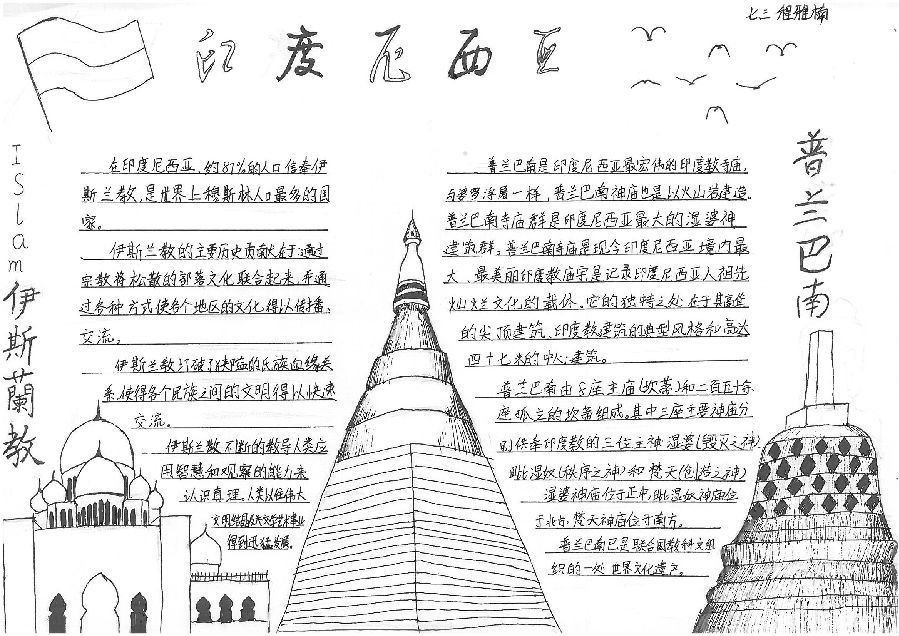 七三 程雅楠
印度尼西亚
Islam伊斯蘭教
在印度尼西亚,约87%的人口信奉伊
斯兰教,是世界上穆斯林人口最多的国
家。
伊斯兰教的主要历史贡献在于:通过
宗教将松散的部落文化联合起来,并通
过各种方式使各个地区的文化得以传播、
交流。
伊斯兰教打破了狭隘的民族血缘关
系,使得各个民族之间的文明得以快速
交流。
伊斯兰教不断的教导人类应
用智慧和观察的能力来
认识真理,人类以往伟大
文明
得到迅猛发展。
普兰巴南
普兰巴南是印度尼西亚最宏伟的印度教寺庙,
与婆罗浮屠一样,普兰巴南神庙也是以火山岩建造.
普兰巴南寺庙群是印度尼西亚最大的湿婆神
建筑群,普兰巴南寺庙是现今印度尼西亚境内最
大、最美丽印度教庙宇是记录印度尼西亚人祖先
灿烂文化的载体。它的独特之处在于其高耸
的尖顶建筑、印度教建筑的典型风格和高达
四十七米的中心建筑。
普兰巴南由8座主庙(坎蒂)和二百五十余
座孤立的坎蒂组成。其中三座主要神庙分
别供奉印度教的三位主神湿婆(毁灭之神)
毗湿奴(秩序之神)和梵天(创造之神)
湿婆神庙位于正中,毗湿奴神庙位
于北方,梵天神庙位于南方。
普兰巴南已是联合国教科文组
织的一处世界文化遗产。